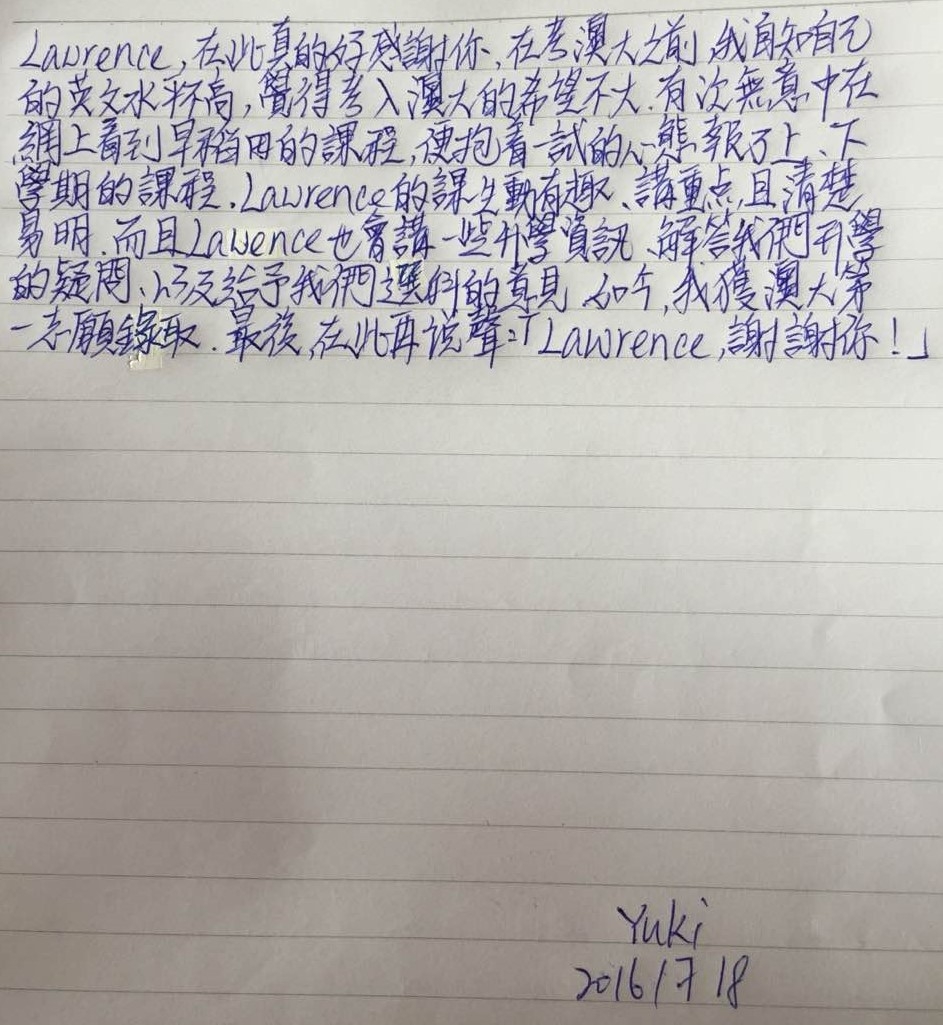 Lawrence, 在此真的好感謝你, 在考澳大之前, 我自知自己
的英文水平不高, 覺得考入澳大的希望不大. 有次無意中在
網上看到早稻田的課程, 便抱着一試的心態報了上、下
學期的課程. Lawrence的課生動有趣、講重点, 且清楚
易明. 而且Lawrence也會講一些升學資訊、解答我們升學
的疑問、以及給予我們選科的意見. 如今, 我獲澳大第
一志願錄取. 最後, 在此再说聲:「Lawrence, 謝謝你!」
Yuki
2016/7 18